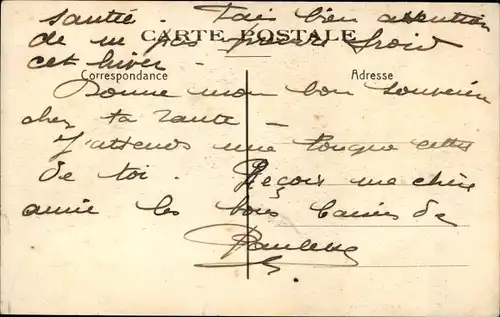 santé. Fais bien attention
CARTE POSTALE
de ne pas prendre froid
cet hiver -
Correspondance
Adresse
Donne mon bon souvenir
chez ta tante -
J'attends une longue lettre
de toi. Reçois ma chère
amie les bons baisers de